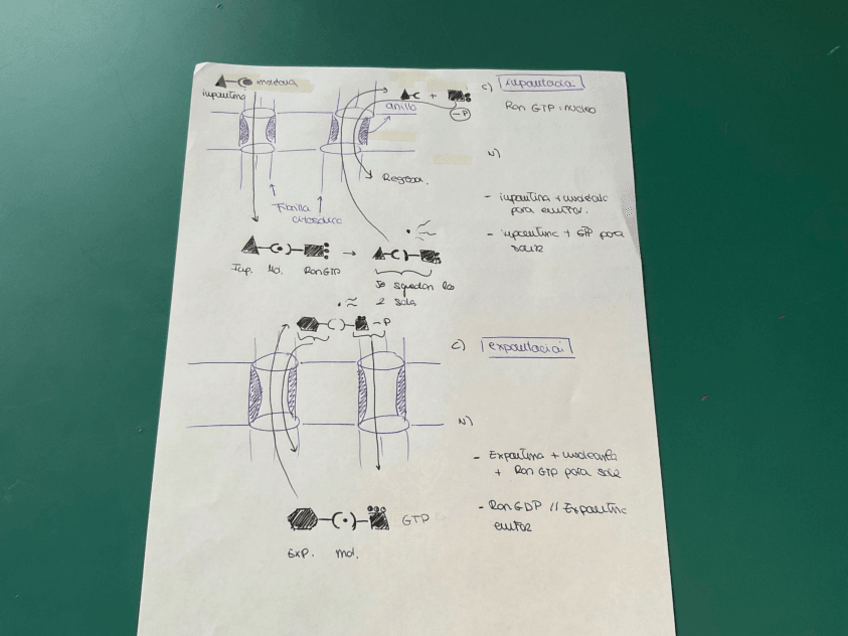 molécula
importina
+
-P
anillo
c) importacia
Ran GTP: nucleo
N)
Regresa.
- importina + molécula
para entrar.
- importina + GTP para
salir
Fibrilla
→
Imp. Mol. RanGTP
Se quedan los
2 solos
-P
c) exportacia
N)
- Exportina + molécula
+ Ran GTP para salir
- Ran GDP // Exportina
entrar
GTP
Exp. mol.